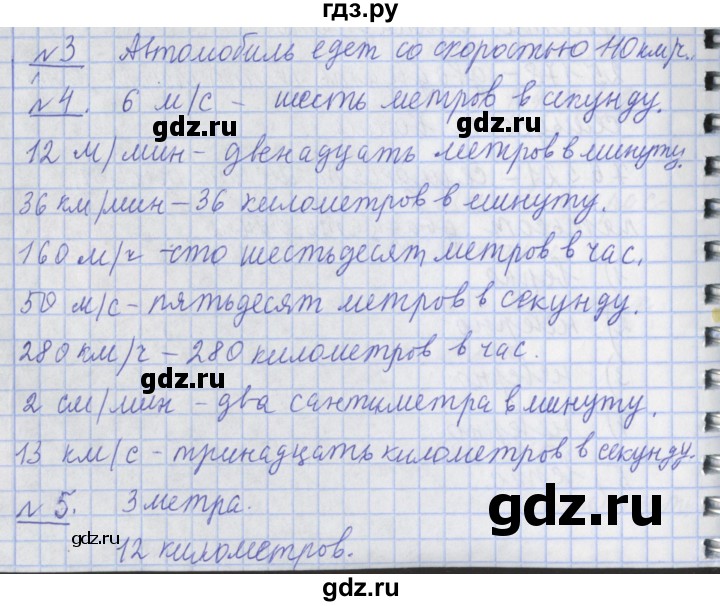 гдз.ру
№3 Автомобиль едет со скоростью 110 км/ч.
№4. 6 м/с - шесть метров в секунду.
gdz.ru gdz.ru
12 м/мин - двенадцать метров в минуту.
36 км/мин - 36 километров в минуту.
gdz.ru
160 м/ч - сто шестьдесят метров в час.
50 м/с - пятьдесят метров в секунду.
gdz.ru gdz.ru
280 км/ч - 280 километров в час.
gdz.ru
2 см/мин - два сантиметра в минуту.
13 км/с - тринадцать километров в секунду.
gdz.ru
№5. 3 метра.
gdz.ru
12 километров.
gdz.ru
gdz.ru